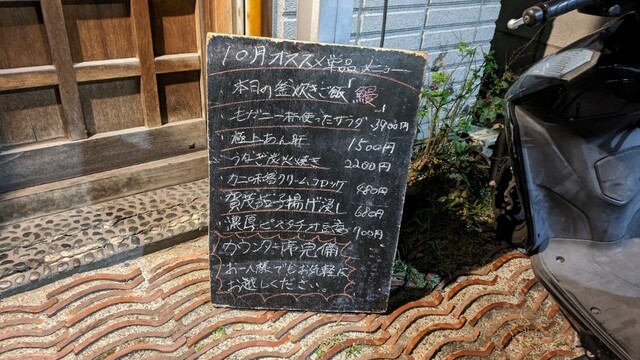 10月オススメ単品メニュー
本日の釜炊きご飯 鰻
毛ガニ一杯使ったサラダ 3900円
極上あん肝 1500円
うなぎ炭火焼き 2200円
カニの本格クリームコロッケ 980円
賀茂茄子揚げ浸し 680円
濃厚ピスタチオ豆腐 700円
カウンター席完備
お一人様でもお気軽に
お越しください。